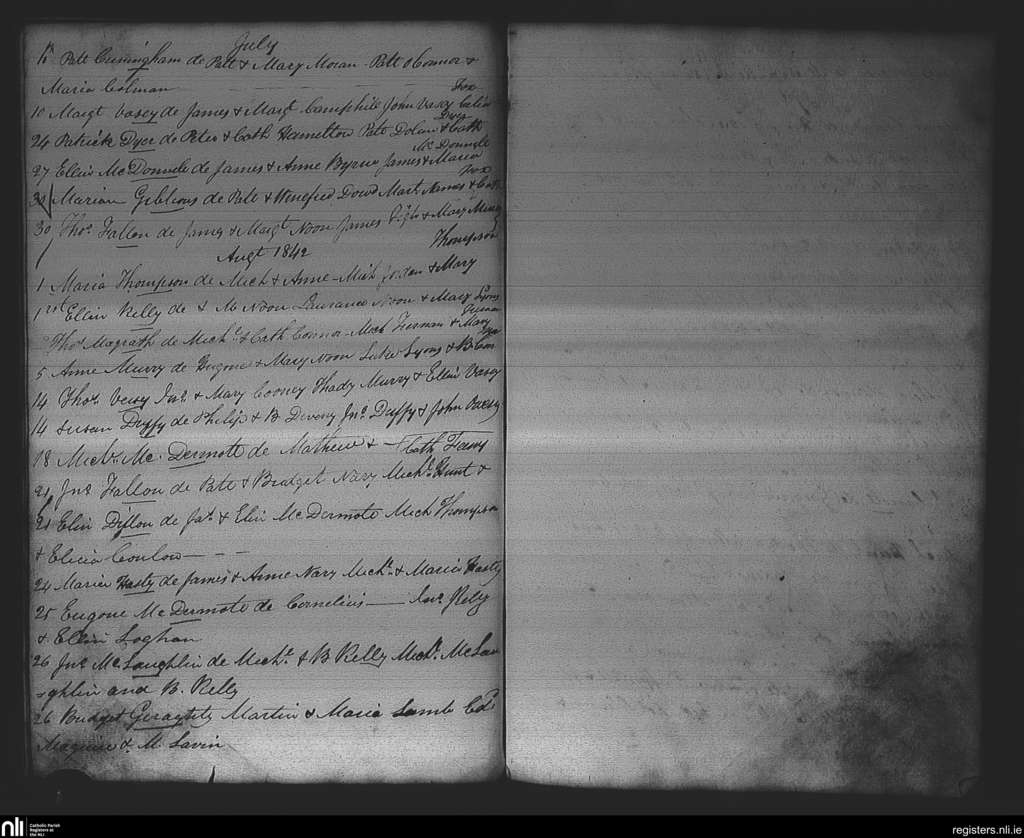 July
Patt Cuningham de Patt & Mary Moran Patt O Connor &
Maria Colman
Fox
10 Margt Vasey de James & Margt Camphill John Vasy Celia
Dyer
24 Patrick Dyer de Peter & Cath Hermitton Patt Dolan & Cath
Mc Donnele
27 Ellin Mc Donnele de James & Anne Byrne James & Maria
Fox
30 Marian Gibbons de Patt & Winefred Dowd Mart &
30 Thos Fallon de James & Margt Noon James & Mary
Augt 1842 Thompson
1 Maria Thompson de Mich & Anne Mich Jordan & Mary
1st Ellin Kelly de & M Noon Laurance Noon & Mary Lyons
Thos Magrath de Michl & Cath Connor Mich & Mary
5 Anne Murry de Eugone & Mary Noon Luke Lyons & B
14 Thos Vasy Jno & Mary Cooney Thady Murry & Ellin Vasey
14 Susan Duffy de Philip & B Diveny Jno Duffy & John
18 Michl Mc Dermott de Mathew & Cath Fanny
21 Jno Fallon de Patt & Bridget Nary Michl Hunt &
21 Elin Dillon de Jas & Elin Mc Dermott Mich Thompson
& Elicia Conlon
24 Maria Hasty de James & Anne Nary Michl & Maria Hasty
25 Eugone Mc Dermott de Cornelius Jno Kelly
& Ellin Loghan
26 Jno McLaughlin de Michl & B Kelly Michl McLau
ghlin and B. Kelly
26 Bridget Geraghty Martin & Maria Lamb Edd
Maguire & M Lavin
nli Catholic Parish
Registers at
the NLI
registers.nli.ie